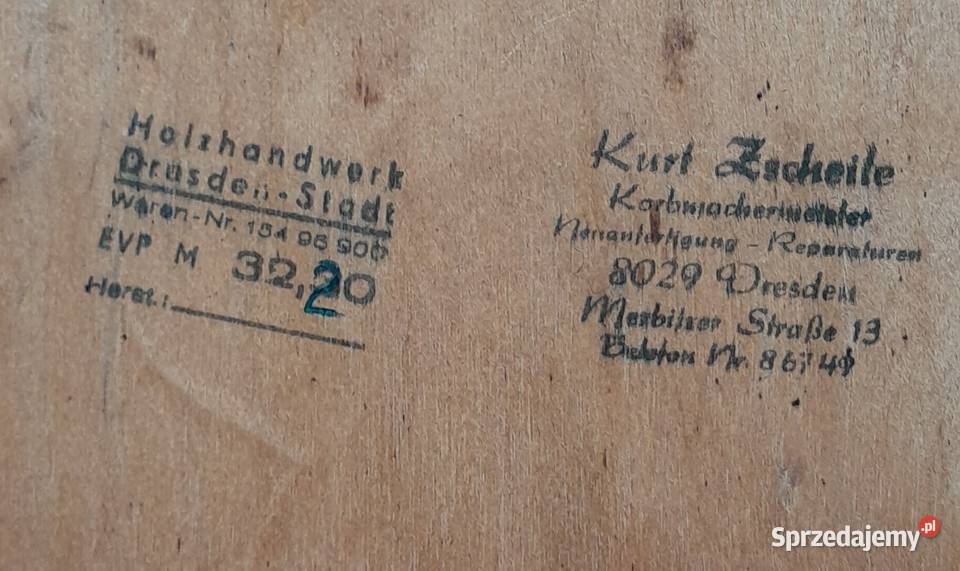 Holzhandwerk
Dresden-Stadt
Waren-Nr. 154 96 900
EVP M 32,20
Herst.:
Kurt Zscheile
Korbmachermeister
Neuanfertigung - Reparaturen
8029 Dresden
Straße 13
Nr. 86149
Sprzedajemy.pl